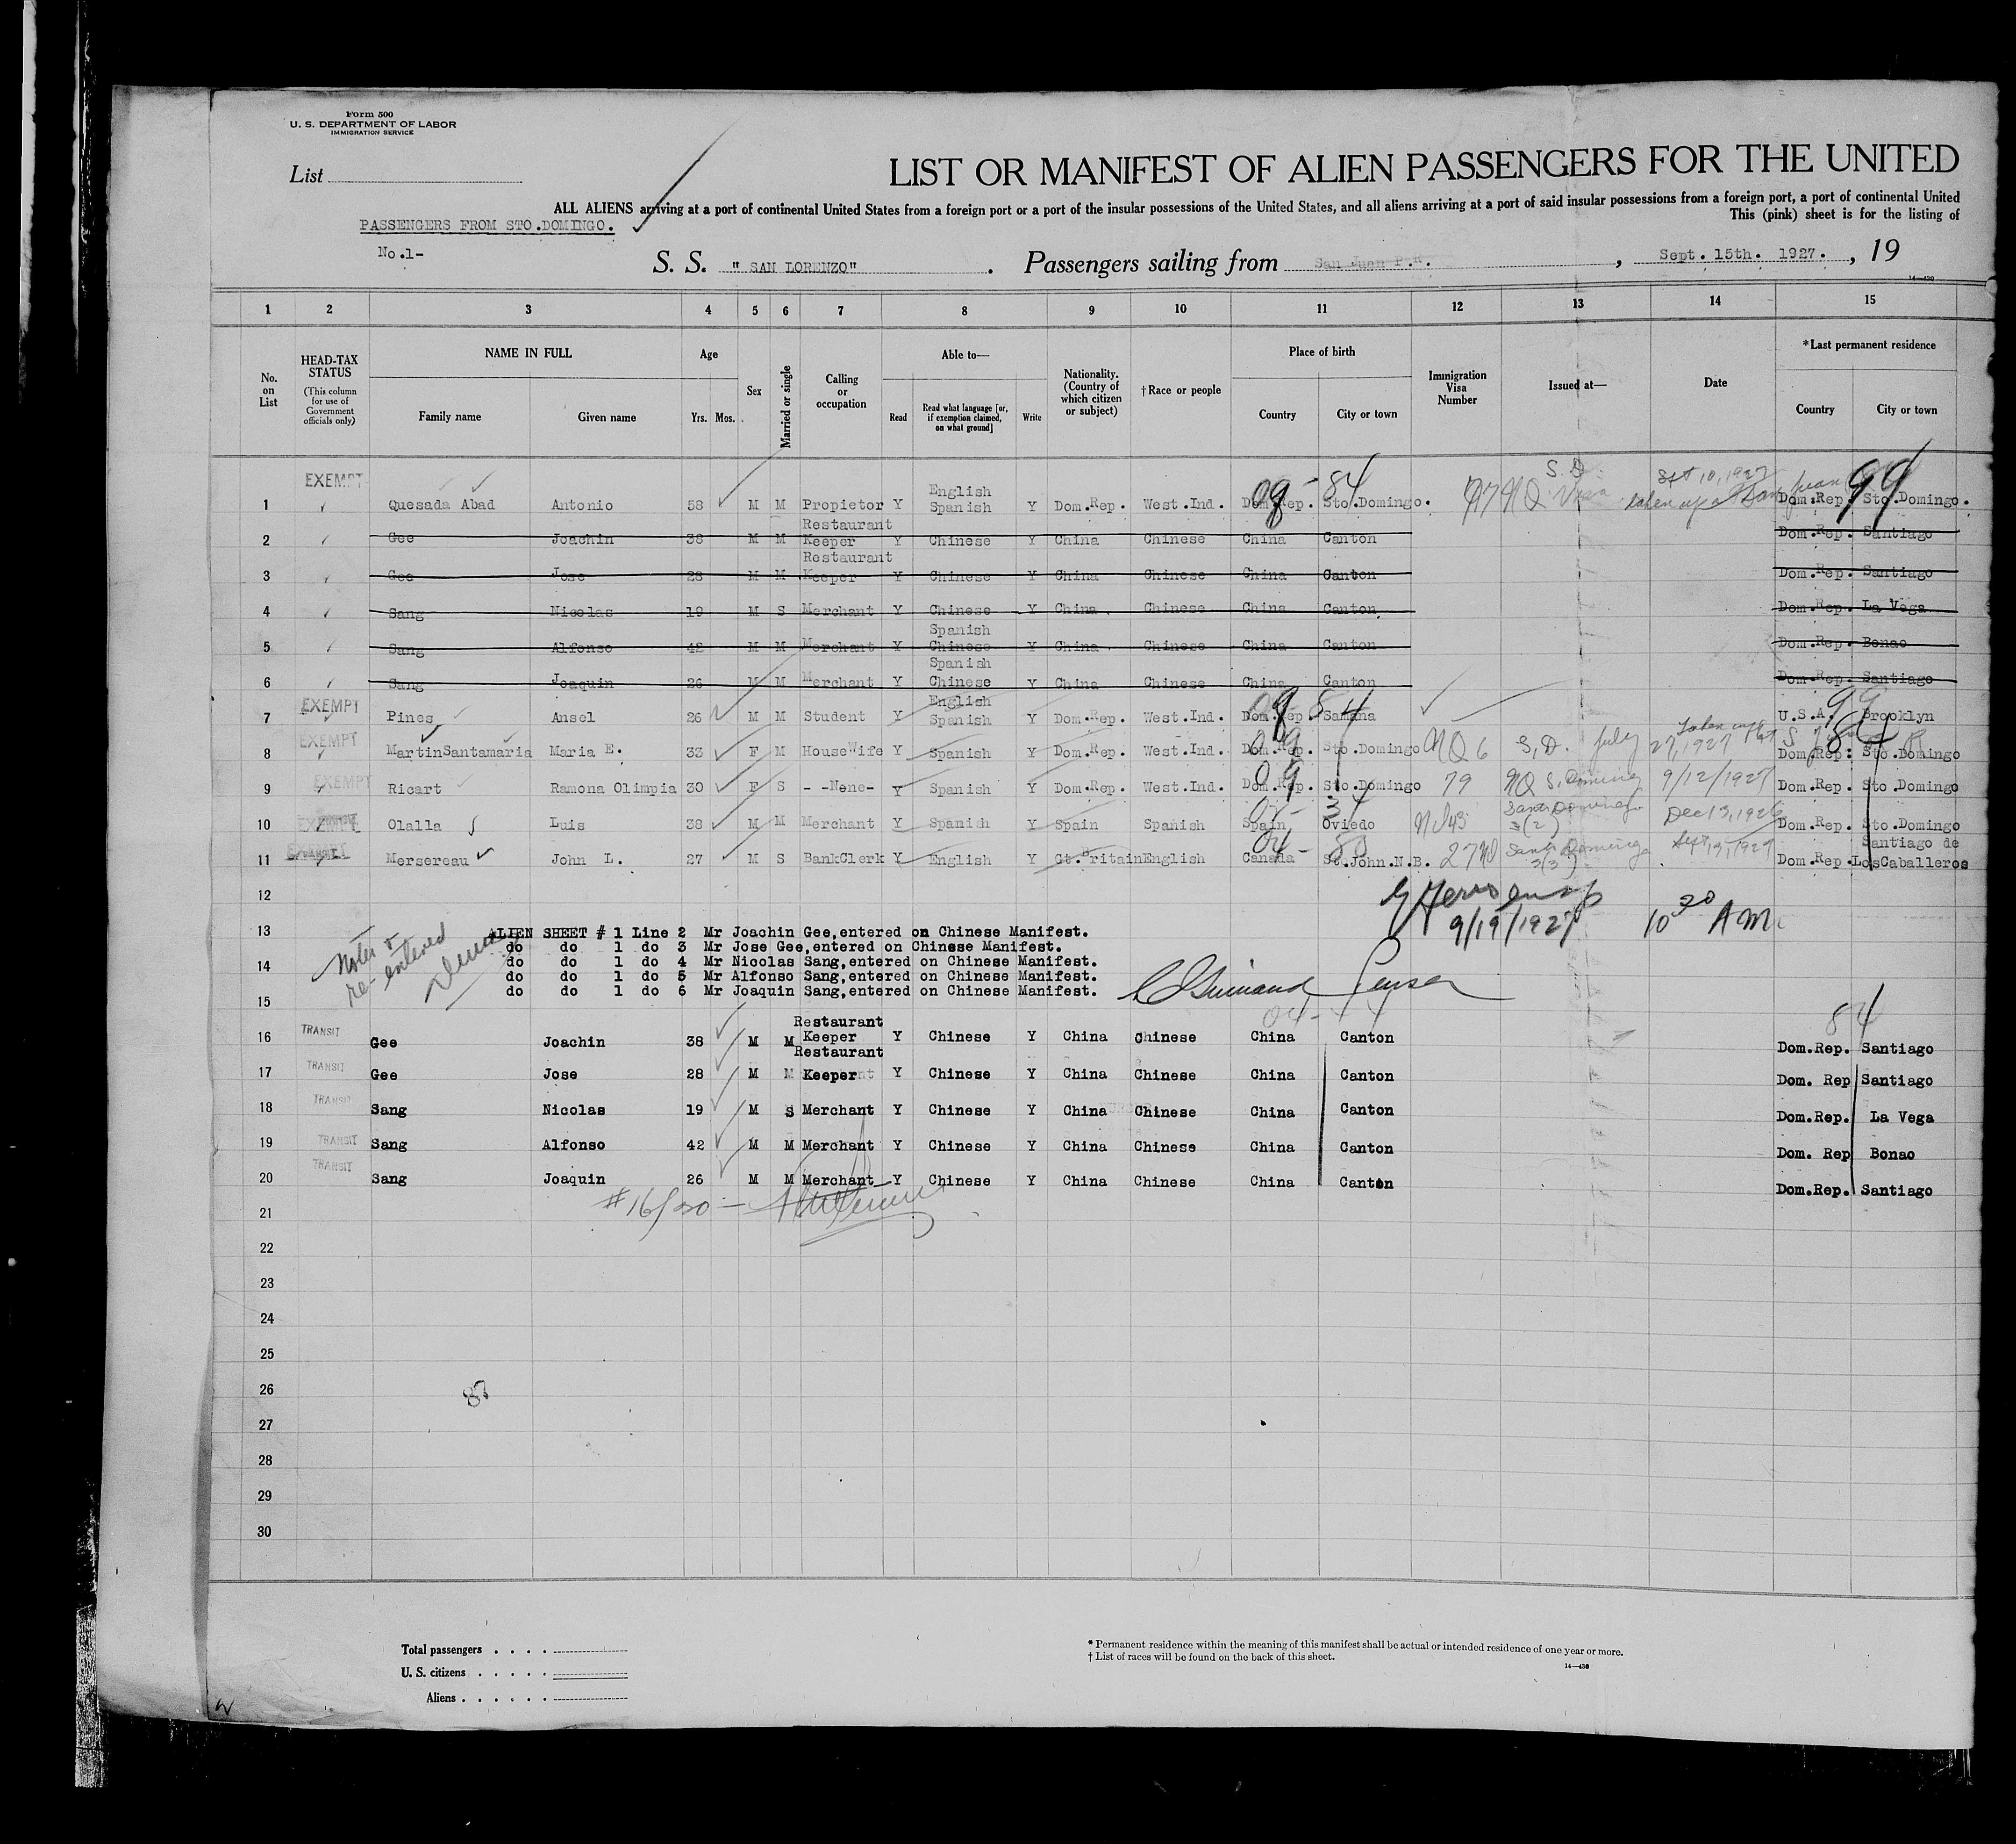 Form 500
U. S. DEPARTMENT OF LABOR
IMMIGRATION SERVICE
List
LIST OR MANIFEST OF ALIEN PASSENGERS FOR THE UNITED
ALL ALIENS arriving at a port of continental United States from a foreign port or a port of the insular possessions of the United States, and all aliens arriving at a port of said insular possessions from a foreign port, a port of continental United
This (pink) sheet is for the listing of
PASSENGERS FROM STO.DOMINGO.
No.1-
S. S. "SAN LORENZO". Passengers sailing from San Juan P.R., Sept. 15th. 1927., 19
14—430
1 2 3 4 5 6 7 8 9 10 11 12 13 14 15
No. on List
HEAD-TAX STATUS (This column for use of Government officials only)
NAME IN FULL Family name Given name
Age Yrs. Mos.
Sex
Married or single
Calling or occupation
Able to— Read Read what language [or, if exemption claimed, on what ground] Write
Nationality. (Country of which citizen or subject)
†Race or people
Place of birth Country City or town
Immigration Visa Number
Issued at—
Date
*Last permanent residence Country City or town
1 EXEMPT Quesada Abad Antonio 58 M M Propietor Y English Spanish Y Dom.Rep. West.Ind. Dom.Rep. Sto.Domingo. S.D. Sept 10, 1927 Dom.Rep. Sto.Domingo.
2 Gee Joachin 38 M M Restaurant Keeper Y Chinese Y China Chinese China Canton Dom.Rep. Santiago
3 Gee Jose 28 M M Restaurant Keeper Y Chinese Y China Chinese China Canton Dom.Rep. Santiago
4 Sang Nicolas 19 M S Merchant Y Chinese Y China Chinese China Canton Dom.Rep. La Vega
5 Sang Alfonso 42 M M Merchant Y Spanish Chinese Y China Chinese China Canton Dom.Rep. Bonao
6 Sang Joaquin 26 M M Merchant Y Spanish Chinese Y China Chinese China Canton Dom.Rep. Santiago
7 EXEMPT Pines Ansel 26 M M Student Y English Spanish Y Dom.Rep. West.Ind. Dom.Rep. Samana U.S.A. Brooklyn
8 EXEMPT MartinSantamaria Maria E. 33 F M HouseWife Y Spanish Y Dom.Rep. West.Ind. Dom.Rep. Sto.Domingo NQ 6 S.D. July 27, 1927 Dom.Rep. Sto.Domingo
9 EXEMPT Ricart Ramona Olimpia 30 F S --None- Y Spanish Y Dom.Rep. West.Ind. Dom.Rep. Sto.Domingo 79 NQ S. Domingo 9/12/1927 Dom.Rep. Sto.Domingo
10 Olalla Luis 38 M M Merchant Y Spanish Y Spain Spanish Spain Oviedo Santo Domingo 3(2) Dec 13, 1926 Dom.Rep. Sto.Domingo
11 Mersereau John L. 27 M S BankClerk Y English Y Gt.Britain English Canada St.John.N.B. Santo Domingo 3(3) Sept 13, 1927 Dom.Rep. Santiago de LosCaballeros
12
9/19/1927 10 30 AM.
13 ALIEN SHEET # 1 Line 2 Mr Joachin Gee,entered on Chinese Manifest.
do do 1 do 3 Mr Jose Gee,entered on Chinese Manifest.
14 do do 1 do 4 Mr Nicolas Sang,entered on Chinese Manifest.
do do 1 do 5 Mr Alfonso Sang,entered on Chinese Manifest.
15 do do 1 do 6 Mr Joaquin Sang,entered on Chinese Manifest.
re-entered
Purser
16 TRANSIT Gee Joachin 38 M M Restaurant Keeper Y Chinese Y China Chinese China Canton Dom.Rep. Santiago
17 TRANSIT Gee Jose 28 M M Restaurant Keeper Y Chinese Y China Chinese China Canton Dom. Rep Santiago
18 TRANSIT Sang Nicolas 19 M S Merchant Y Chinese Y China Chinese China Canton Dom.Rep. La Vega
19 TRANSIT Sang Alfonso 42 M M Merchant Y Chinese Y China Chinese China Canton Dom. Rep Bonao
20 TRANSIT Sang Joaquin 26 M M Merchant Y Chinese Y China Chinese China Canton Dom.Rep. Santiago
#16/20 —
21
22
23
24
25
26
27
28
29
30
Total passengers . . . .
U. S. citizens . . . . .
Aliens . . . . . .
* Permanent residence within the meaning of this manifest shall be actual or intended residence of one year or more.
† List of races will be found on the back of this sheet.
14—430